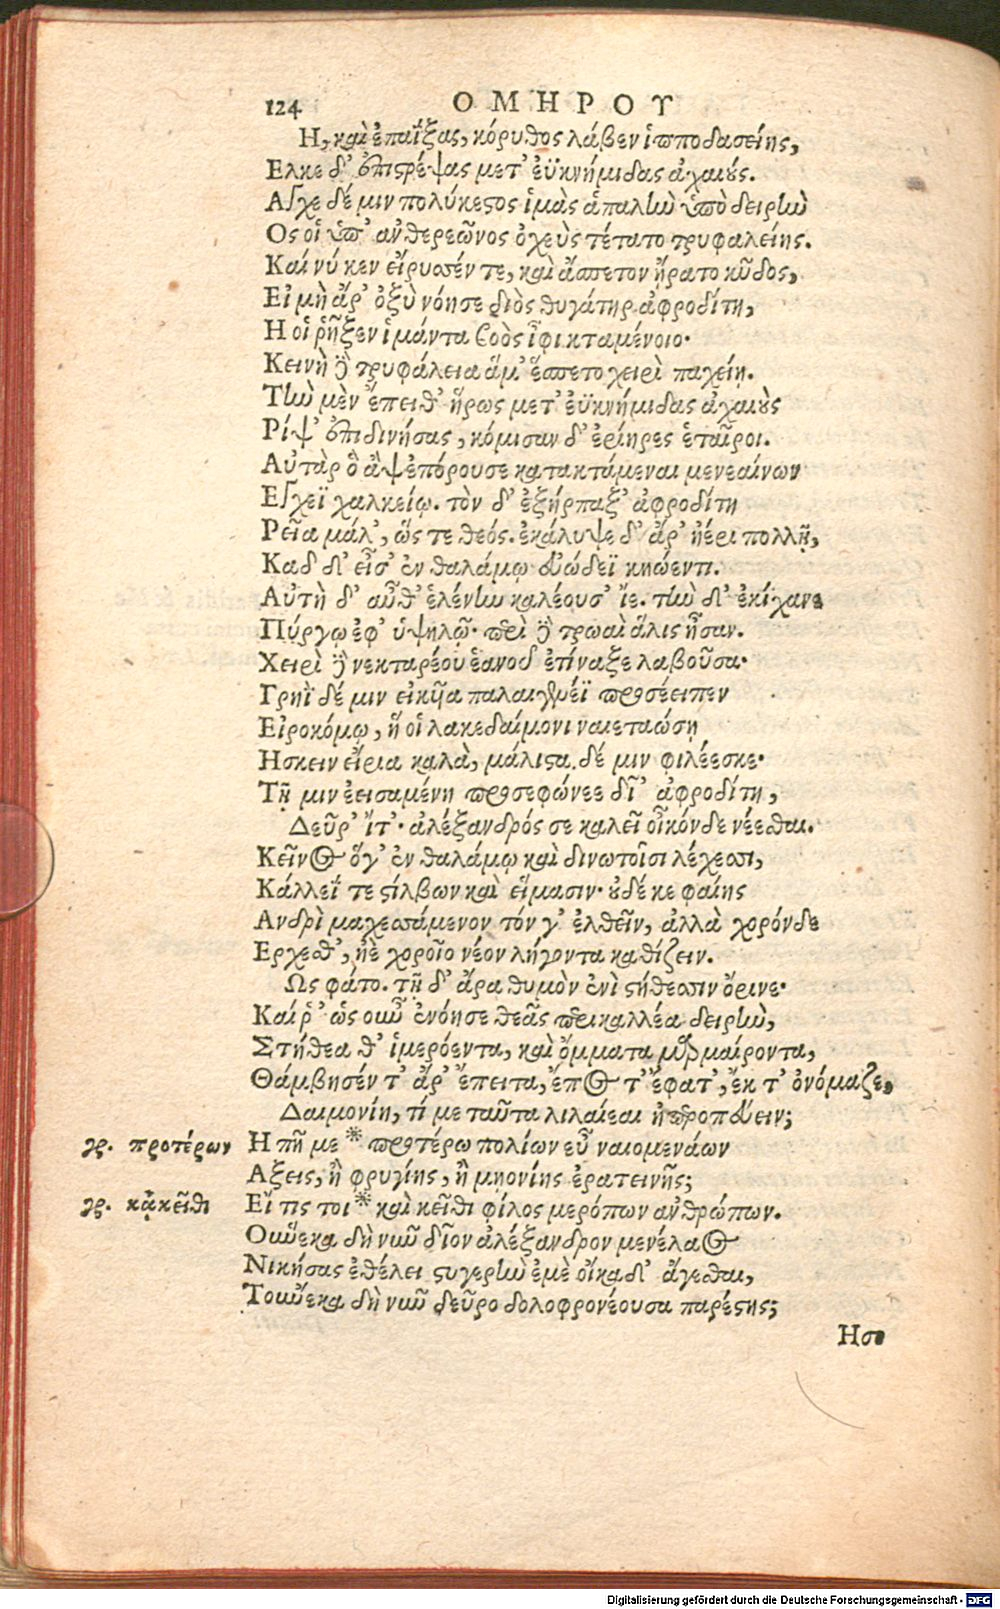 124 ΟΜΗΡΟΥ
Η, καὶ ἐπαΐξας, κόρυθος λάβεν ἱπποδασείης,
Ελκε δ' ἐπιστρέψας μετ' ἐϋκνήμιδας ἀχαιούς.
Αγχε δέ μιν πολύκεστος ἱμὰς ἁπαλὴν ὑπὸ δειρὴν
Ος οἱ ὑπ' ἀνθερεῶνος ὀχεὺς τέτατο τρυφαλείης.
Καί νύ κεν εἴρυσέν τε, καὶ ἄσπετον ἤρατο κῦδος,
Εἰ μὴ ἄρ' ὀξὺ νόησε διὸς θυγάτηρ ἀφροδίτη,
Η οἱ ῥῆξεν ἱμάντα βοὸς ἶφι κταμένοιο·
Κεινὴ δὲ τρυφάλεια ἅμ' ἕσπετο χειρὶ παχείῃ.
Τὴν μὲν ἔπειθ' ἥρως μετ' ἐϋκνήμιδας ἀχαιοὺς
Ρίψ' ἐπιδινήσας, κόμισαν δ' ἐρίηρες ἑταῖροι.
Αὐτὰρ ὃ ἂψ ἐπόρουσε κατακτάμεναι μενεαίνων
Εγχεϊ χαλκείῳ. τὸν δ' ἐξήρπαξ' ἀφροδίτη
Ρεῖα μάλ', ὥς τε θεός. ἐκάλυψε δ' ἄρ' ἠέρι πολλῇ,
Καδ δ' εἷσ' ἐν θαλάμῳ εὐώδεϊ κηώεντι.
Αὐτὴ δ' αὖθ' ἑλένην καλέουσ' ἴε. τὴν δ' ἐκίχανε
Πύργῳ ἐφ' ὑψηλῷ· περὶ δὲ τρωαὶ ἅλις ἦσαν.
Χειρὶ δὲ νεκταρέου ἑανοῦ ἐτίναξε λαβοῦσα·
Γρηῒ δέ μιν εἰκυῖα παλαιγενέϊ προσέειπεν
Εἰροκόμῳ, ἥ οἱ λακεδαίμονι ναιεταώσῃ
Ησκειν εἴρια καλὰ, μάλιστα δέ μιν φιλέεσκε·
Τῇ μιν ἐεισαμένη προσεφώνεε δῖ' ἀφροδίτη,
Δεῦρ' ἴτ'· ἀλέξανδρός σε καλεῖ οἶκόνδε νέεσθαι.
Κεῖνος ὅγ' ἐν θαλάμῳ καὶ δινωτοῖσι λέχεσσι,
Κάλλεΐ τε στίλβων καὶ εἵμασιν· οὐδέ κε φαίης
Ανδρὶ μαχεσσάμενον τόν γ' ἐλθεῖν, ἀλλὰ χορόνδε
Ερχεσθ', ἠὲ χοροῖο νέον λήγοντα καθίζειν.
Ως φάτο. τῇ δ' ἄρα θυμὸν ἐνὶ στήθεσσιν ὄρινε·
Καί ῥ' ὡς οὖν ἐνόησε θεᾶς περικαλλέα δειρὴν,
Στήθεα θ' ἱμερόεντα, καὶ ὄμματα μαρμαίροντα,
Θάμβησέν τ' ἄρ' ἔπειτα, ἔπος τ' ἔφατ', ἔκ τ' ὀνόμαζε,
Δαιμονίη, τί με ταῦτα λιλαίεαι ἠπεροπεύειν;
γρ. προτέρων Η πῆ με * προτέρω πολίων εὖ ναιομενάων
Αξεις, ἢ φρυγίης, ἢ μῃονίης ἐρατεινῆς;
γρ. κἀκεῖθι Εἴ τις τοι * καὶ κεῖθι φίλος μερόπων ἀνθρώπων.
Οὕνεκα δὴ νῦν δῖον ἀλέξανδρον μενέλαος
Νικήσας ἐθέλει στυγερὴν ἐμὲ οἴκαδ' ἄγεσθαι,
Τοὔνεκα δὴ νῦν δεῦρο δολοφρονέουσα παρέστης;
Ησο
Digitalisierung gefördert durch die Deutsche Forschungsgemeinschaft - DFG